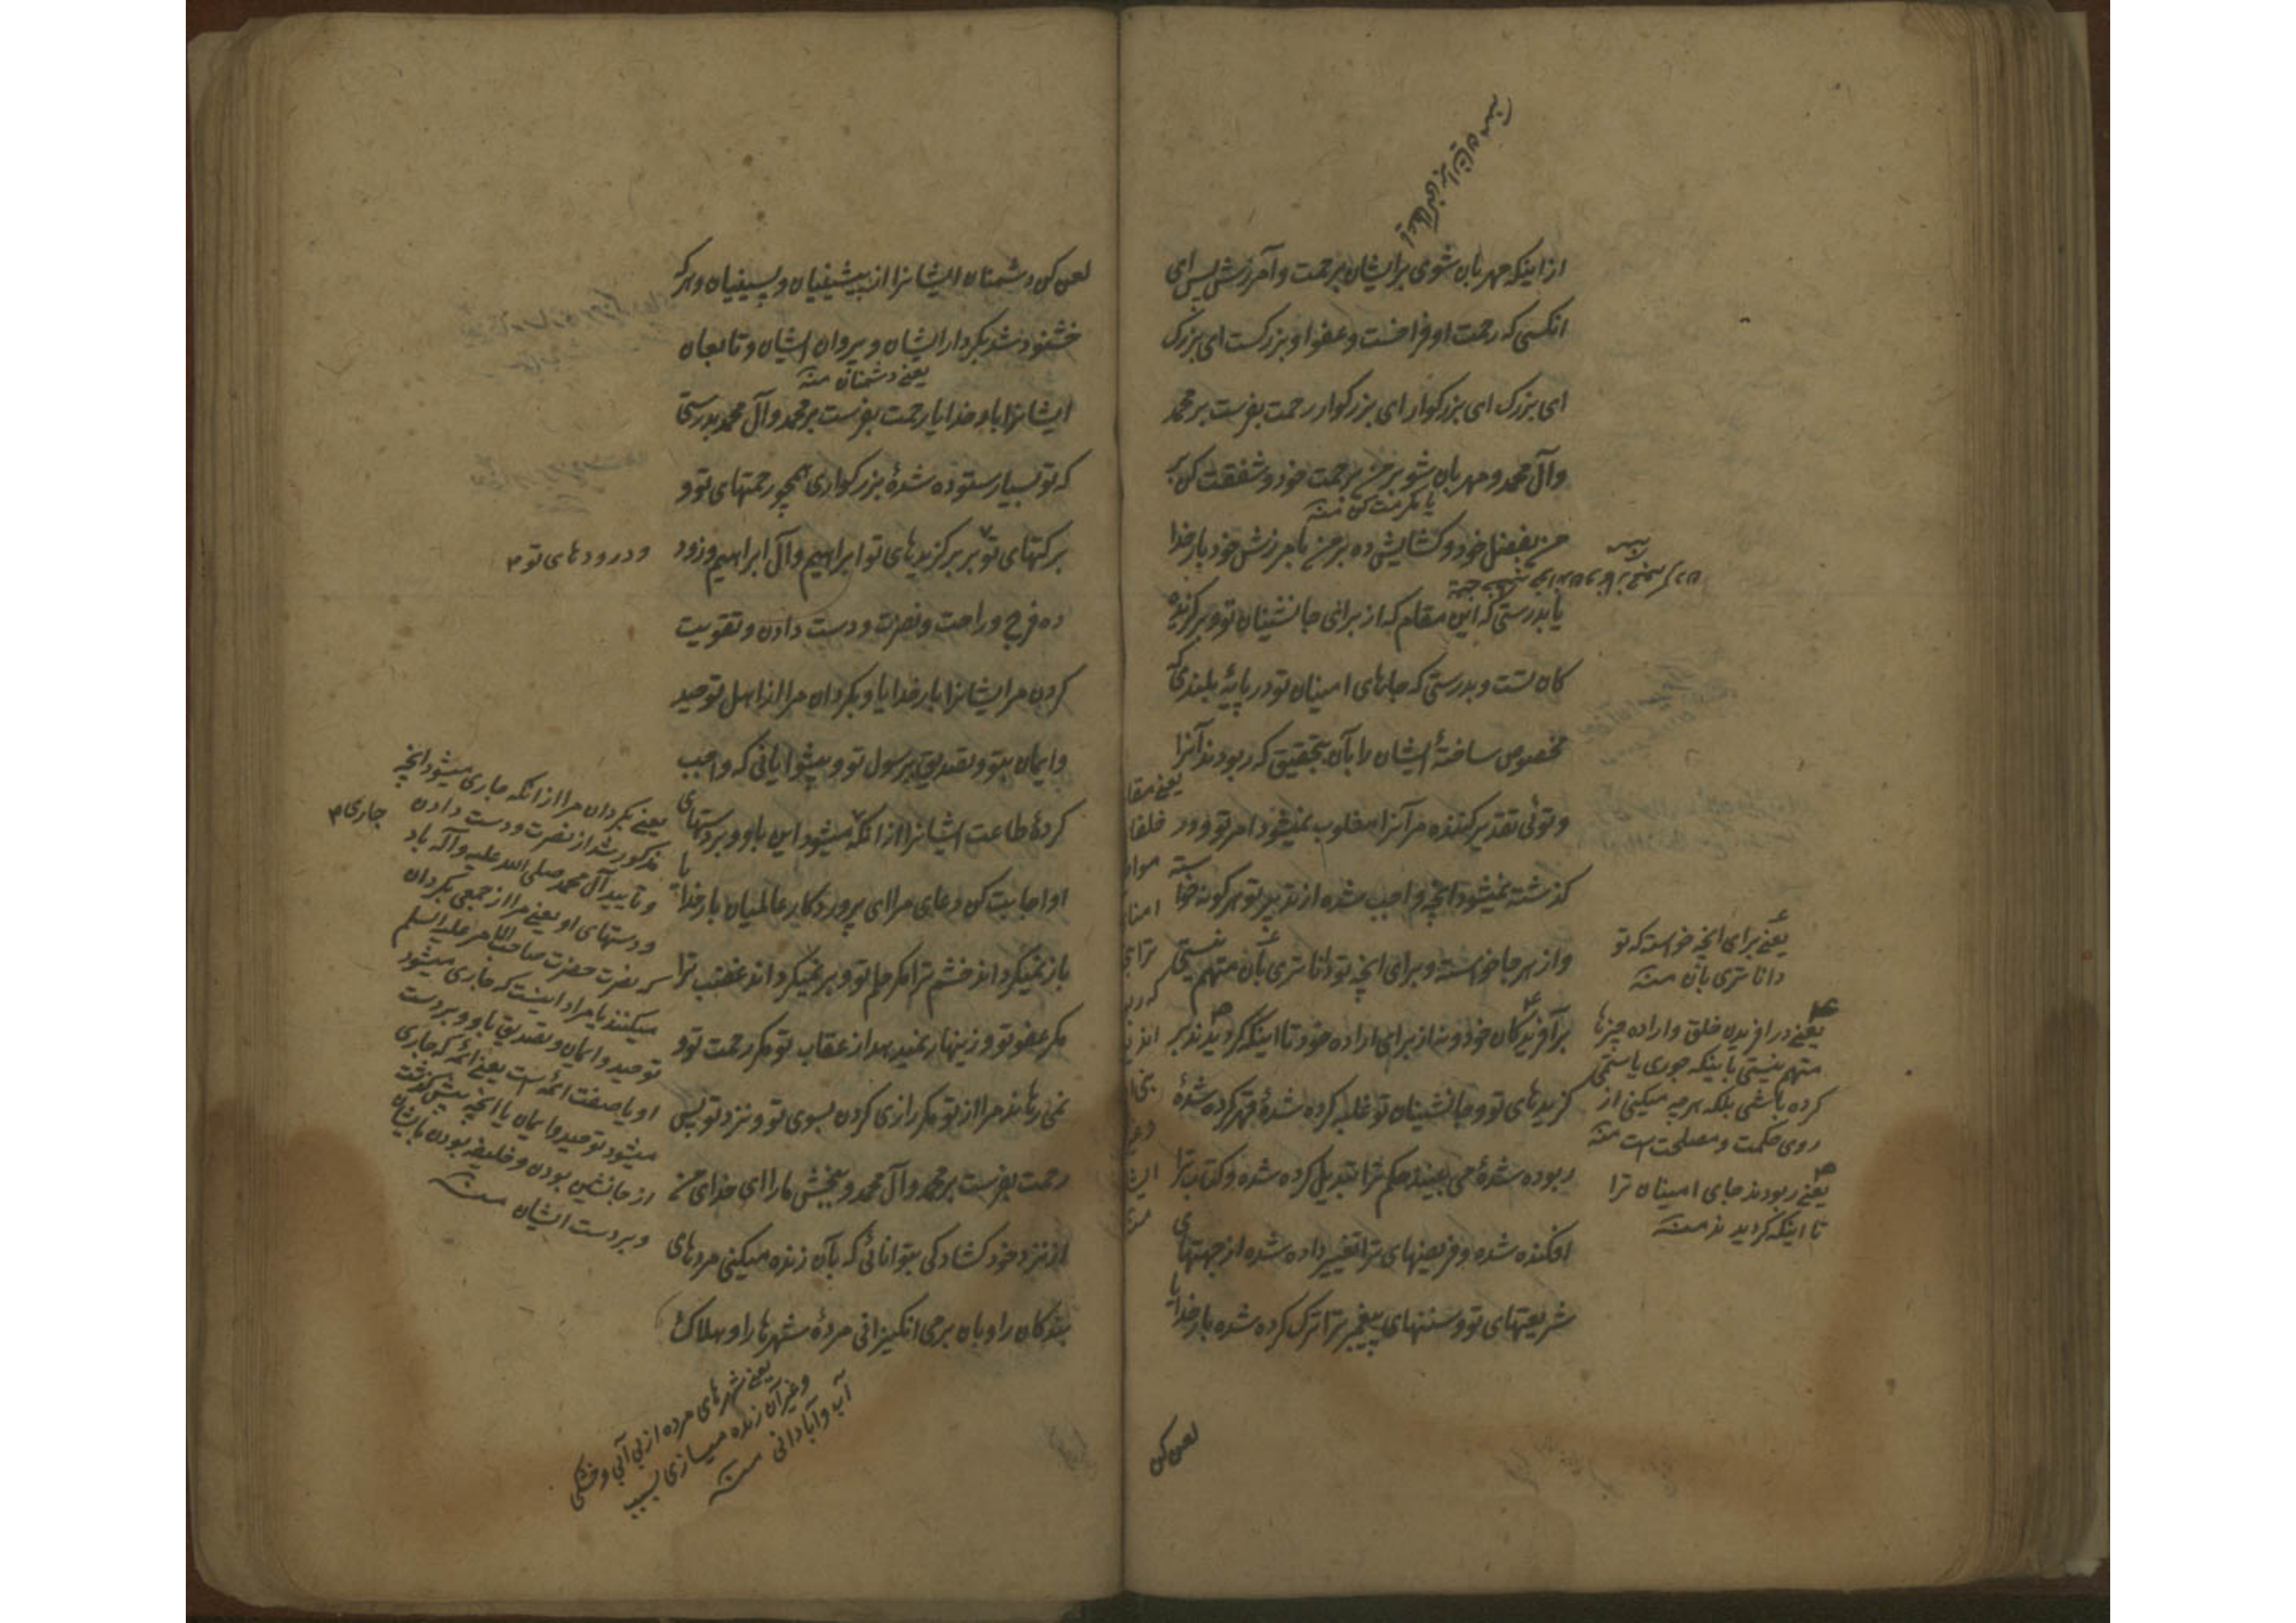 از اینکه مهربان شوی بر ایشان برحمت و آمرزش پس ای
انکسی که رحمت او فراخست و عفو او بزرکست ای بزرک
ای بزرک ای بزرکوار ای بزرکوار رحمت بفرست بر محمد
وآل محمد و مهربان شو بر من برحمت خود و شفقت کن بر
یا مکرمت کن منه
من بفضل خود و کشایش ده بر من بامرزش خود بار خدا
یا بدرستی که این مقام که از برای جانشینان تو و برکزیده
کان تست و بدرستی که جاهای امینان تو در پایهٔ بلندی که
مخصوص ساختهٔ ایشان را بآن بتحقیق که ربودند آنرا
و توئی تقدیر کننده مر آنرا مغلوب نمیشود امر تو و در
کذشته نمیشود انچه واجب شده از تدبیر تو هرکونه خواسته
و از هر جا خواسته و برای انچه تو داناتری بآن متهم نیستی
بر آفریدکان خود و نه از برای اراده خود تا اینکه کردیدند بر
کزیدهای تو و جانشینان تو غلبه کرده شدهٔ قهر کرده شدهٔ
ربوده شدهٔ می بینند حکم ترا تبدیل کرده شده و کتاب ترا
افکنده شده و فریضهای ترا تغییر داده شده از جهتهای
شریعتهای تو و سنتهای پیغمبر ترا ترک کرده شده بار خدایا
یعنی برای انچه خواسته که تو
داناتری بآن منه
یعنی در افریدن خلق و اراده چیزها
متهم نیستی باینکه جوری یا ستمی
کرده باشی بلکه هر چه میکنی از
روی حکمت و مصلحت است منه
یعنی ربودند جای امینان ترا
تا اینکه کردیدند منه
لعن کن
لعن کن دشمنان ایشانرا از پیشینیان و پسینیان و هر که
خشنود شد بکردار ایشان و پیروان ایشان و تابعان
یعنی دشمنان منه
ایشانرا بار خدایا رحمت بفرست بر محمد وآل محمد بدرستی
که تو بسیار ستوده شدهٔ بزرکواری همچو رحمتهای تو و
برکتهای تو بر برکزیدهای تو ابراهیم وآل ابراهیم و زود
و درودهای تو
ده فرج و راحت و نصرت و دست دادن و تقویت
کردن مر ایشانرا بار خدایا و بکردان مرا از اهل توحید
وایمان بتو و تصدیق برسول تو و پیشوایانی که واجب
کردهٔ طاعت ایشانرا از انکه میشود این باو و بر دستهای
او اجابت کن دعای مرا ای پروردکار عالمیان بار خدایا
باز نمیکرداند خشم ترا مکر حلم تو و بر نمیکرداند غضب ترا
مکر عفو تو و زینهار نمیدهد از عقاب تو مکر رحمت تو و
نمی رهاند مرا از تو مکر زاری کردن بسوی تو و نزد تو پس
رحمت بفرست بر محمد وآل محمد و ببخش ما را ای خدای من
از نزد خود کشادکی بتوانائی که بآن زنده میکنی مردهای
بندکان را و بآن برمی انکیزانی مردهٔ شهرها را و هلاک
یعنی بکردان مرا از انکه جاری میشود انچه
مذکور شد از نصرت و دست دادن
جاری
و تایید آل محمد صلی الله علیه وآله باد
و دستهای او یعنی مرا از جمعی بکردان
که نصرت حضرت صاحب الامر علیه السلم
میکنند یا مراد اینست که جاری میشود
توحید و ایمان و تصدیق باو و بر دست
او یا صفت ائمه است یعنی ائمهٔ که جاری
میشود توحید و ایمان یا انچه پیش کذشت
از جانشین بودن و خلیفه بودن بایشان
و بر دست ایشان منه
یعنی شهرهای مرده از بی آبی و خشکی
و غیر آن زنده میسازی بسبب
آب وآبادانی منه